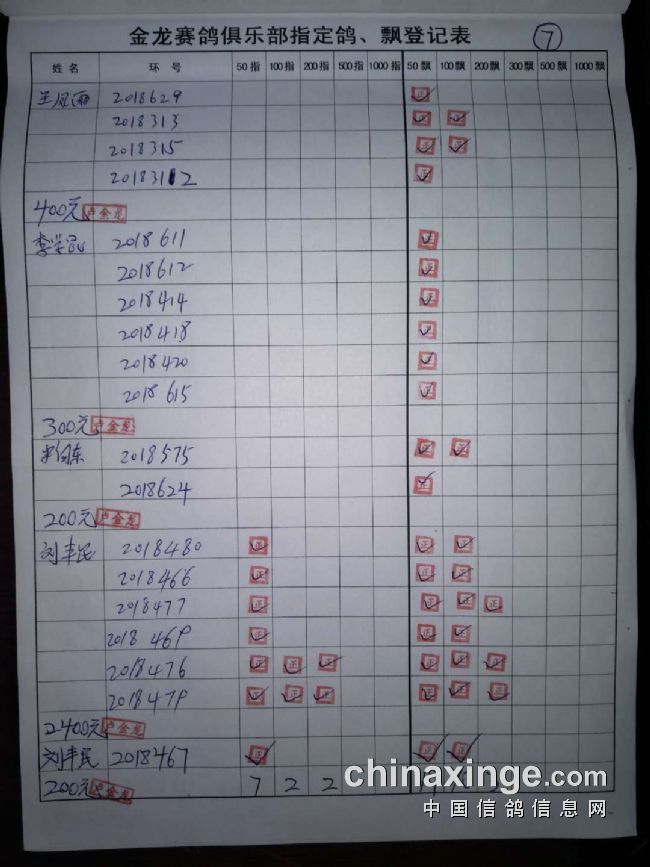 金龙赛鸽俱乐部指定鸽、飘登记表 7
姓名 环号 50指 100指 200指 500指 1000指 50飘 100飘 200飘 300飘 500飘 1000飘
王凤雨 2018629 正
2018313 正 正
2018315 正 正
2018312 正
400元 卢金龙
2018611 正
2018612 正
2018414 正
2018418 正
2018420 正
2018615 正
300元 卢金龙
2018575 正 正
2018624 正
200元 卢金龙
刘丰民 2018480 正 正 正
2018466 正 正 正
2018477 正 正 正 正
2018469 正 正 正
2018476 正 正 正 正 正 正
2018479 正 正 正 正 正 正
2400元 卢金龙
刘丰民 2018467 正 正 正
200元 卢金龙 7 2 2
chinaxinge.com
中国信鸽信息网